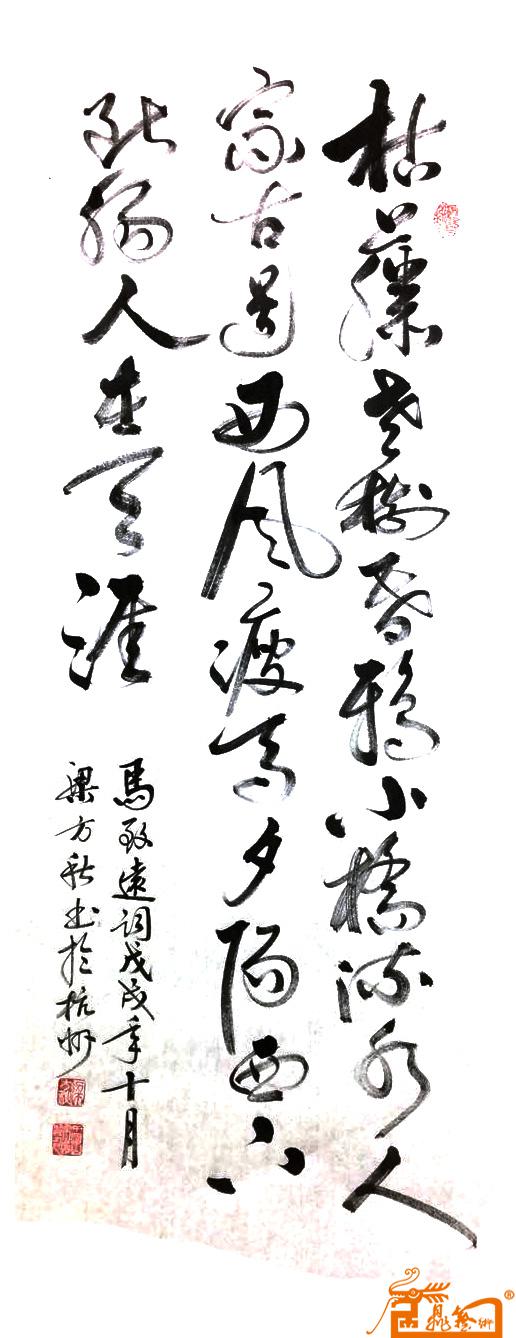 枯藤老樹昏鴉小橋流水人
家古道西風瘦馬夕陽西下
斷腸人在天涯
馬致遠詞戊戌年十月
梁方秋書於杭州